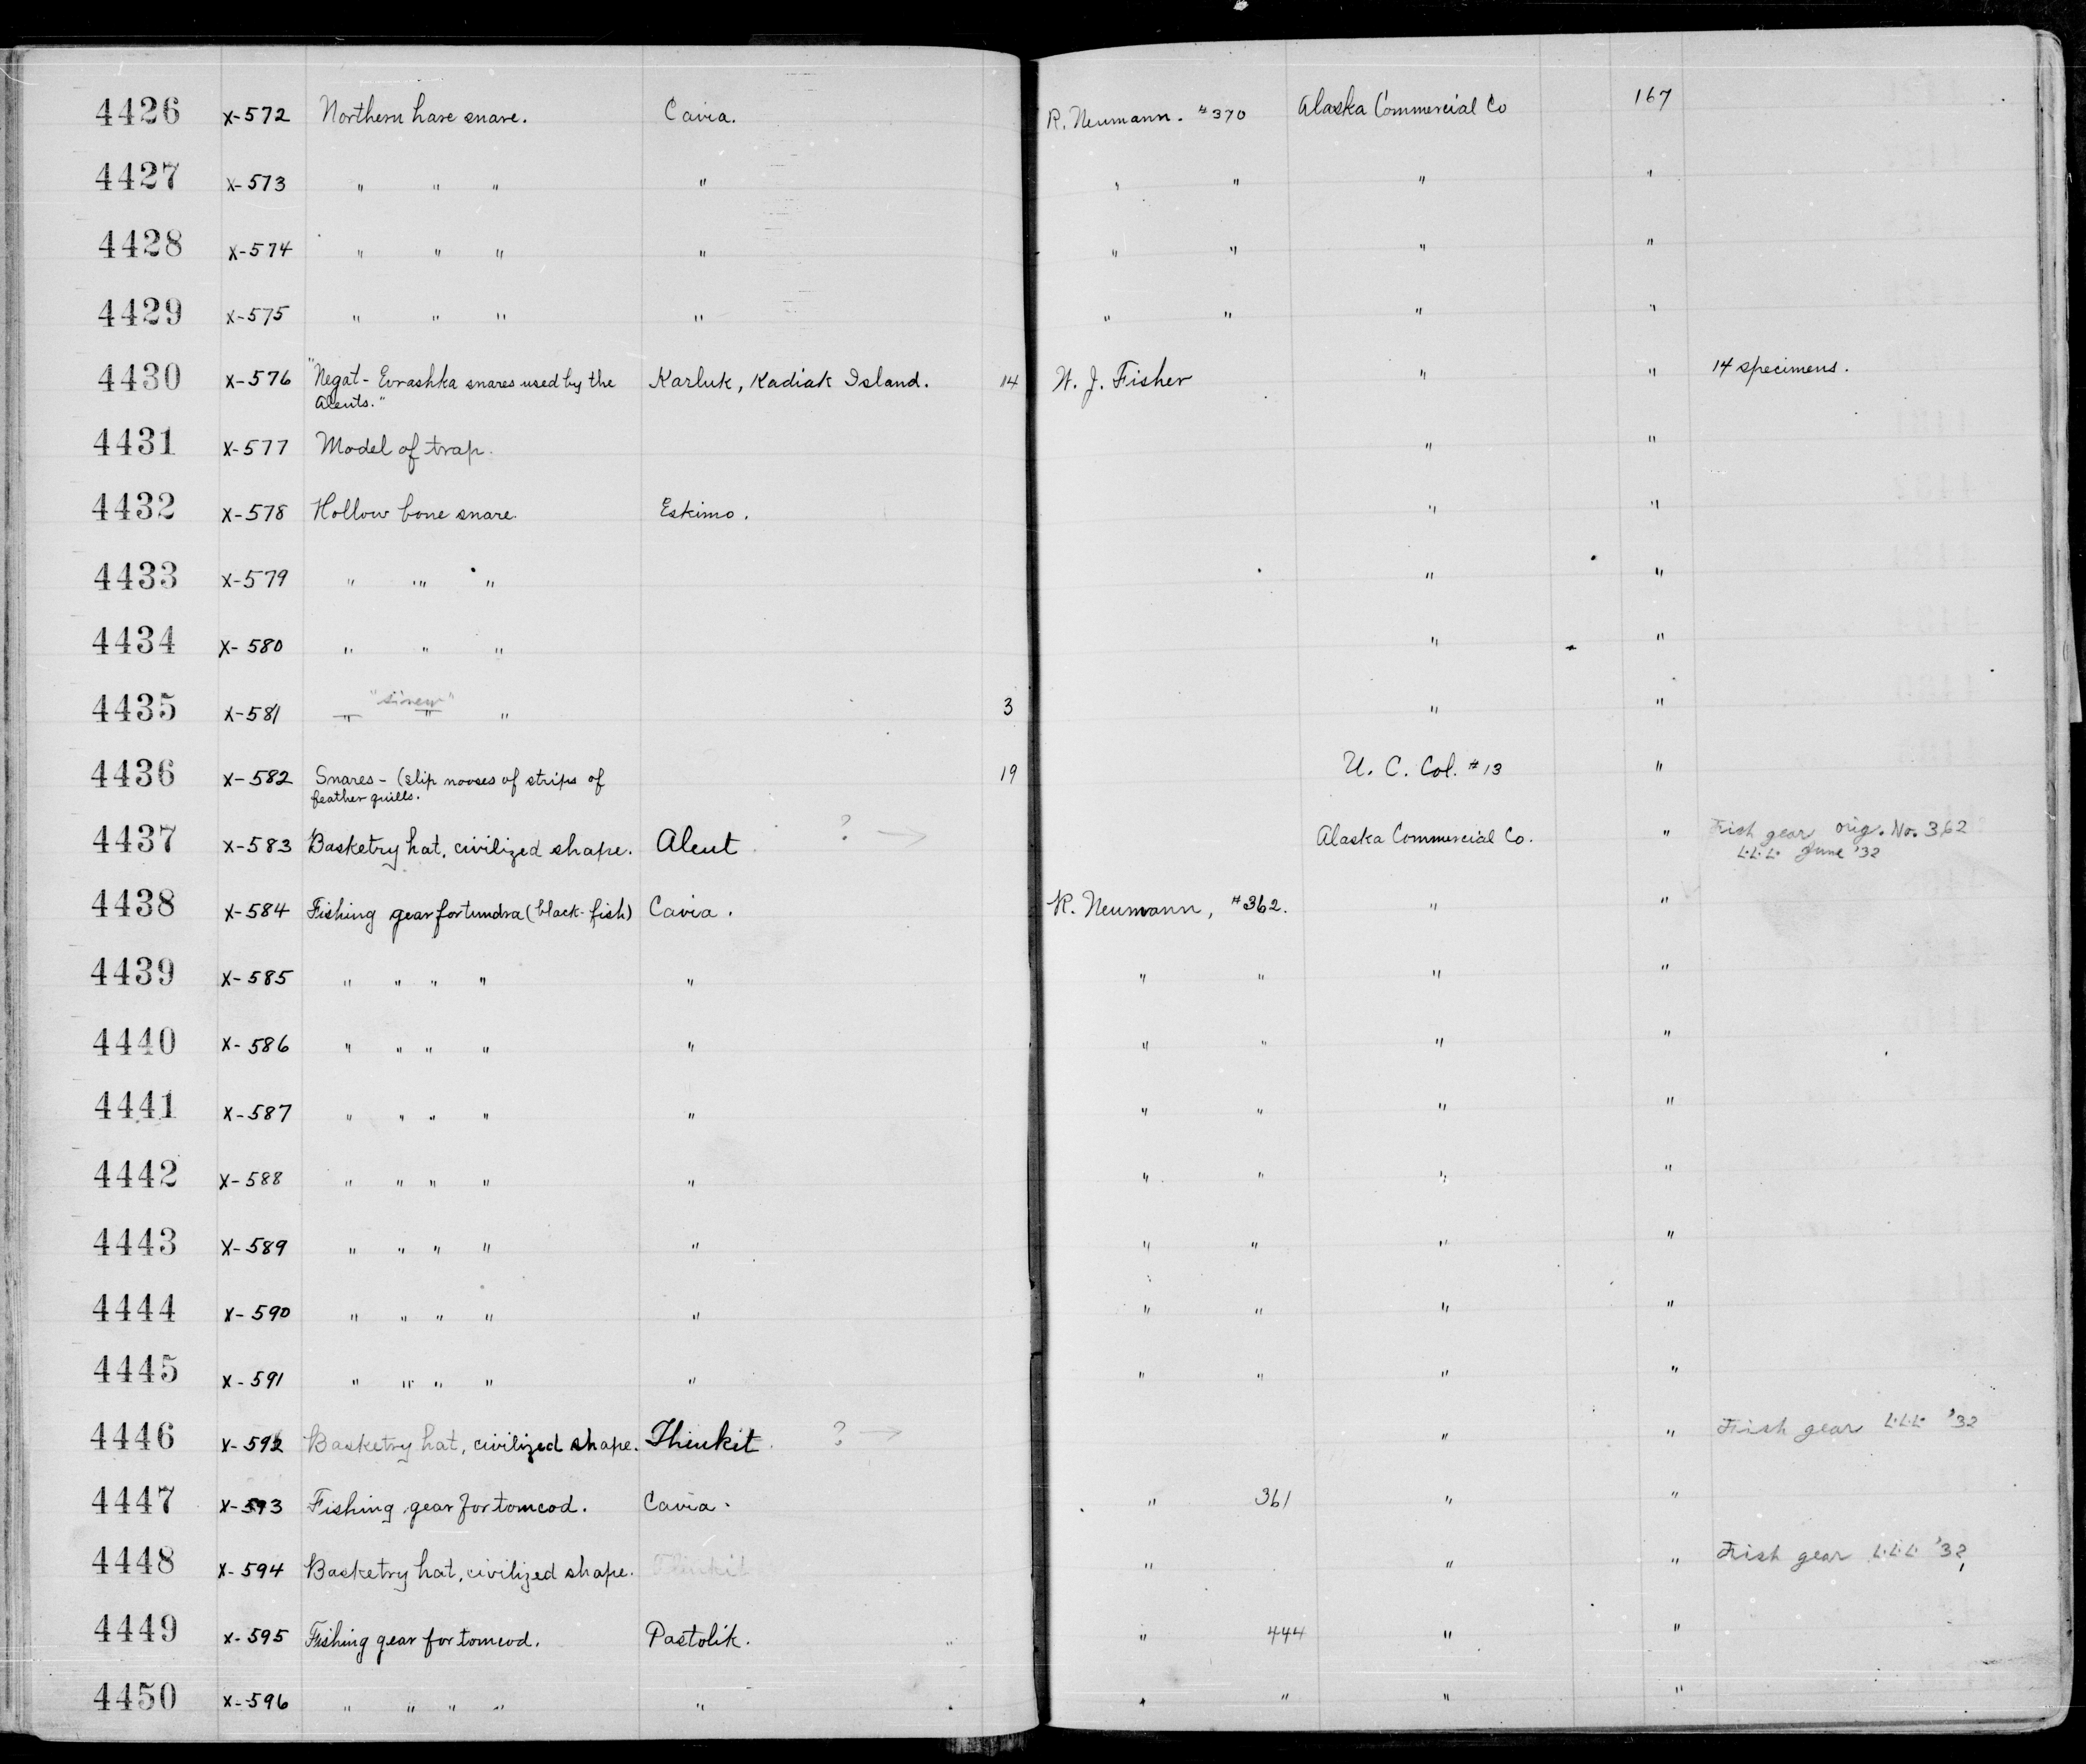 4426 X-572 Northern hare snare. Cavia. R. Neumann. #370 Alaska Commercial Co 167
4427 X-573 " " " " " " " "
4428 X-574 " " " " " " " "
4429 X-575 " " " " " " " "
4430 X-576 "Negat - Evrashka snares used by the Karluk, Kadiak Island. 14 W. J. Fisher " " 14 specimens.
Aleuts."
4431 X-577 Model of trap. " "
4432 X-578 Hollow bone snare. Eskimo. " "
4433 X-579 " " " " "
4434 X-580 " " " " "
"sinew"
4435 X-581 " " " 3 " "
4436 X-582 Snares - (slip nooses of strips of 19 U. C. Col. #13 "
feather quills.
4437 X-583 Basketry hat, civilized shape. Aleut ? → Alaska Commercial Co. " Fish gear orig. No. 362
L.L.L. June '32
4438 X-584 Fishing gear for tundra (black-fish) Cavia. R. Neumann, #362. " "
4439 X-585 " " " " " " " " "
4440 X-586 " " " " " " " " "
4441 X-587 " " " " " " " " "
4442 X-588 " " " " " " " " "
4443 X-589 " " " " " " " " "
4444 X-590 " " " " " " " " "
4445 X-591 " " " " " " " " "
4446 X-592 Basketry hat, civilized shape. Thinkit. ? → " " Fish gear L.L.L. '32
4447 X-593 Fishing gear for tomcod. Cavia. " 361 " "
4448 X-594 Basketry hat, civilized shape. Thinkit " " " Fish gear L.L.L. '32
4449 X-595 Fishing gear for tomcod. Pastolik. " 444 " "
4450 X-596 " " " " " " " " "